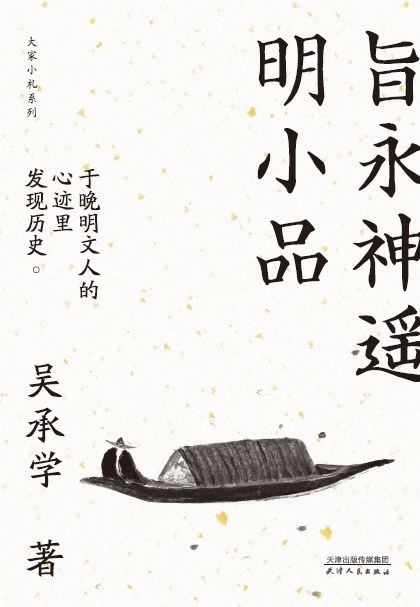 旨永神遥
明小品
于晚明文人的
心迹里
发现历史。
大家小札系列
吴承学 著
天津出版传媒集团
天津人民出版社